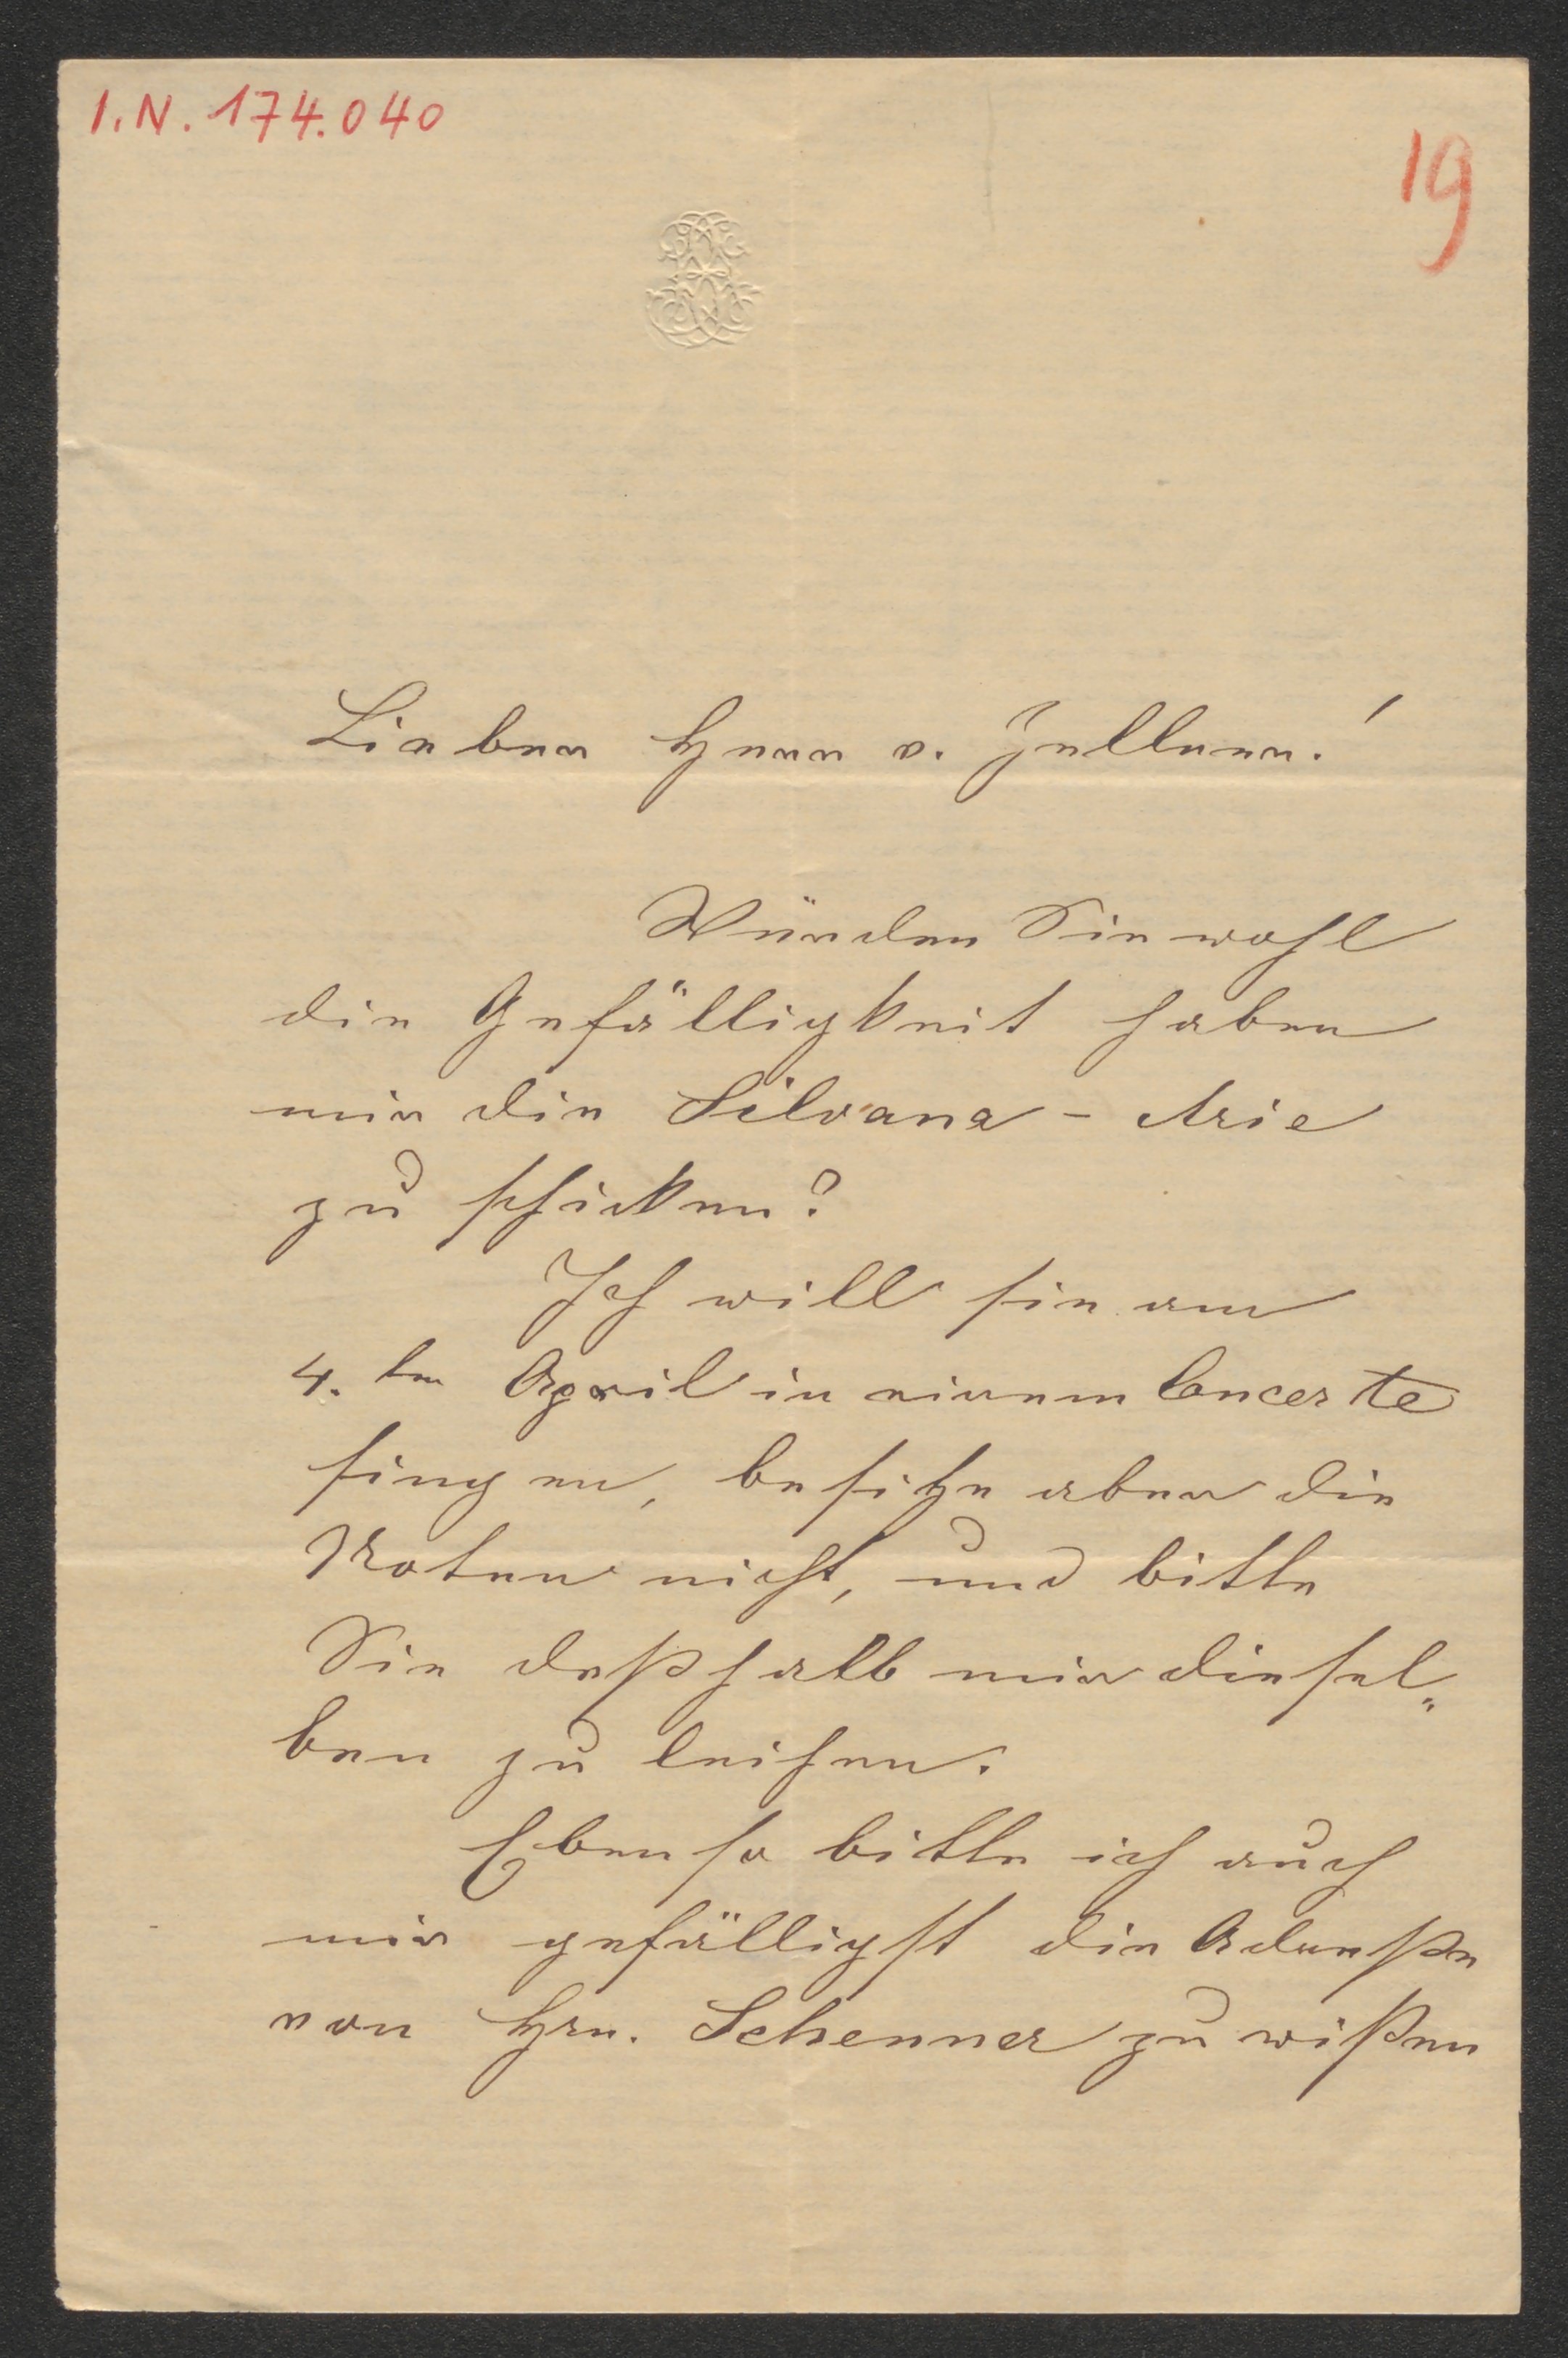 I.N. 174.040
19
Lieber Herr v. Zellner!
Würden Sie wohl
die Gefälligkeit haben
mir die Silvana - Arie
zu schicken?
Ich will sie am
4. ten April in einem Concerte
singen, besitze aber die
Noten nicht, und bitte
Sie deßhalb mir diesel„
ben zu leihen.
Ebenso bitte ich auch
mir gefälligst die Adreße
von Hrn. Schenner zu wißen